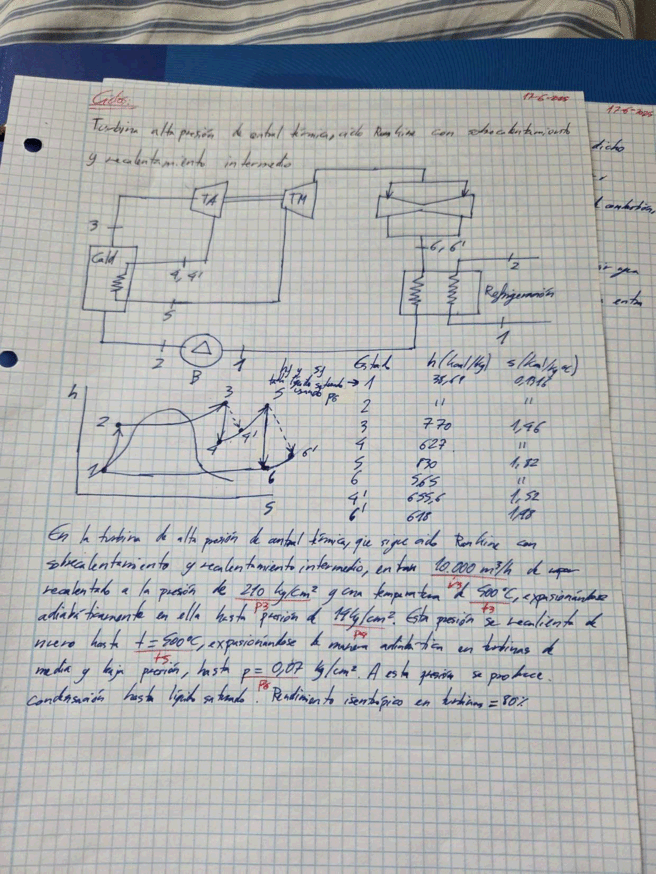 Ciclos.
17-6-2025
17-6-2025
Turbina alta presión de central térmica, ciclo Rankine con sobrecalentamiento
y recalentamiento intermedio
dicho
TA
TM
3
Cald
4, 4'
5
6, 6'
2
Refrigeración
1
2
B
1
entra
Estado h (kcal/kg) s (kcal/kg ºC)
1 38,69
2 " "
3 770 1,46
4 627 "
5 830 1,82
6 565 "
4' 655,6 1,52
6' 618 1,98
h
3
5
2
4
4'
6'
1
6
S
En la turbina de alta presión de central térmica, que sigue ciclo Rankine con
sobrecalentamiento y recalentamiento intermedio, entran 10.000 m³/h de vapor
recalentado a la presión de 210 kg/cm² y una temperatura de 500ºC, expansionándose
p3
t3
adiabáticamente en ella hasta presión de 14 kg/cm². Esta presión se recaliente de
nuevo hasta t = 500ºC, expansionándose de manera adiabática en turbinas de
t5
media y baja presión, hasta p = 0,07 kg/cm². A esta presión se produce
p6
condensación hasta líquido saturado. Rendimiento isentrópico en turbinas = 80%